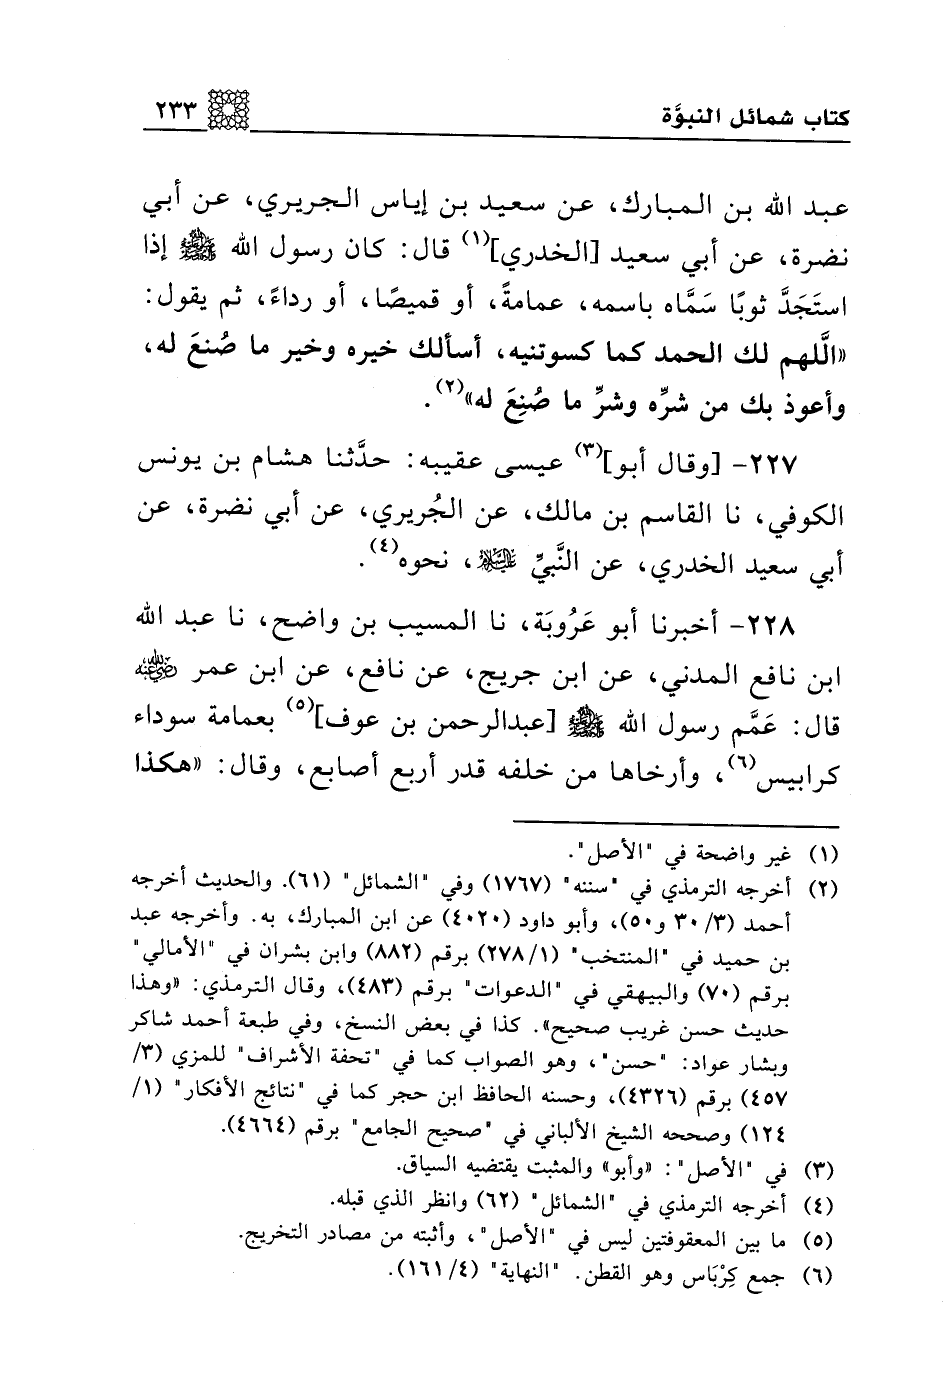 كتاب شمائل النبوَّة ٢٣٣
عبد الله بن المبارك، عن سعيد بن إياس الجريري، عن أبي
نضرة، عن أبي سعيد [الخدري](١) قال: كان رسول الله ﷺ إذا
استَجَدَّ ثوبًا سَمَّاه باسمه، عمامةً، أو قميصًا، أو رداءً، ثم يقول:
«الَّلهم لك الحمد كما كسوتنيه، أسألك خيره وخير ما صُنعَ له،
وأعوذ بك من شرِّه وشرِّ ما صُنِعَ له»(٢).
٢٢٧- [وقال أبو](٣) عيسى عقيبه: حدَّثنا هشام بن يونس
الكوفي، نا القاسم بن مالك، عن الجُريري، عن أبي نضرة، عن
أبي سعيد الخدري، عن النَّبيِّ ﷺ، نحوه(٤).
٢٢٨- أخبرنا أبو عَرُوبَة، نا المسيب بن واضح، نا عبد الله
ابن نافع المدني، عن ابن جريج، عن نافع، عن ابن عمر رضي الله عنه
قال: عَمَّم رسول الله ﷺ [عبدالرحمن بن عوف](٥) بعمامة سوداء
كرابيس(٦)، وأرخاها من خلفه قدر أربع أصابع، وقال: «هكذا
(١) غير واضحة في "الأصل".
(٢) أخرجه الترمذي في "سننه" (١٧٦٧) وفي "الشمائل" (٦١). والحديث أخرجه
أحمد (٣/ ٣٠ و٥٠)، وأبو داود (٤٠٢٠) عن ابن المبارك، به. وأخرجه عبد
بن حميد في "المنتخب" (١/ ٢٧٨) برقم (٨٨٢) وابن بشران في "الأمالي"
برقم (٧٠) والبيهقي في "الدعوات" برقم (٤٨٣)، وقال الترمذي: «وهذا
حديث حسن غريب صحيح». كذا في بعض النسخ، وفي طبعة أحمد شاكر
وبشار عواد: "حسن"، وهو الصواب كما في "تحفة الأشراف" للمزي (٣/
٤٥٧) برقم (٤٣٢٦)، وحسنه الحافظ ابن حجر كما في "نتائج الأفكار" (١/
١٢٤) وصححه الشيخ الألباني في "صحيح الجامع" برقم (٤٦٦٤).
(٣) في "الأصل": «وأبو» والمثبت يقتضيه السياق.
(٤) أخرجه الترمذي في "الشمائل" (٦٢) وانظر الذي قبله.
(٥) ما بين المعقوفتين ليس في "الأصل"، وأثبته من مصادر التخريج.
(٦) جمع كِرْبَاس وهو القطن. "النهاية" (٤/ ١٦١).